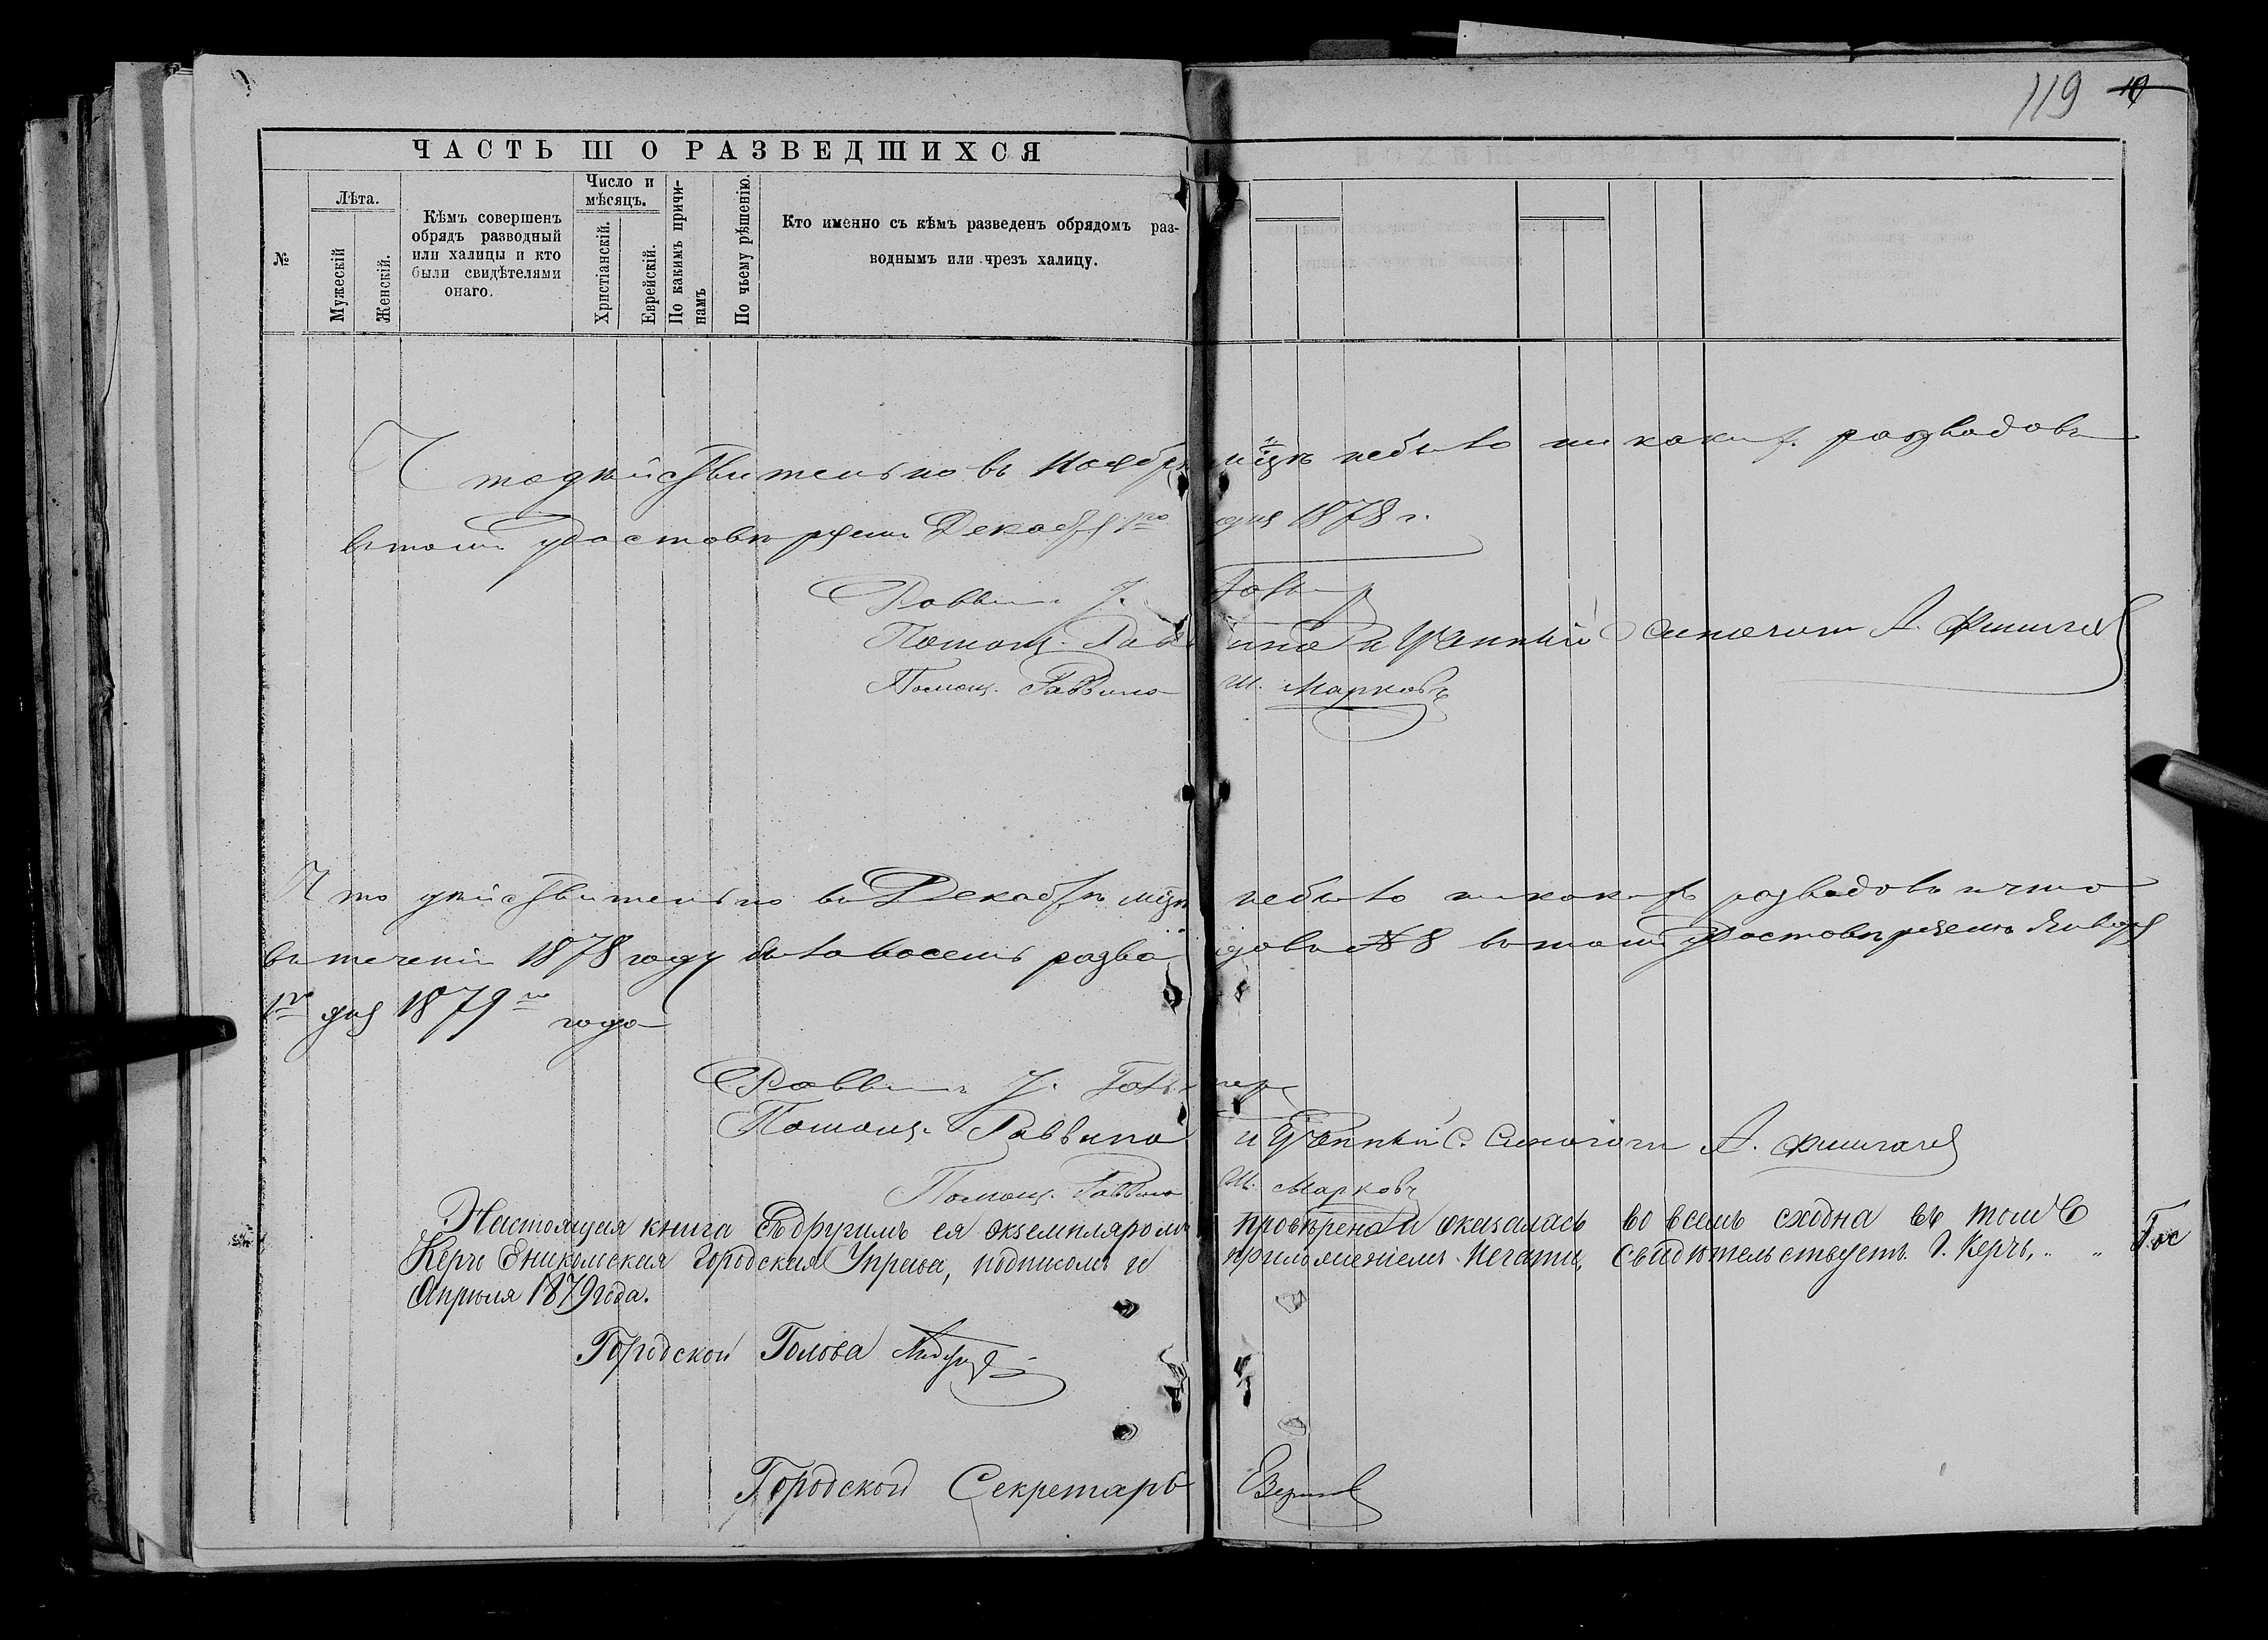 119 19
ЧАСТЬ III О РАЗВЕДШИХСЯ
№
Лѣта.
Мужескій
Женскій.
Кѣмъ совершенъ
обрядъ разводный
или халицы и кто
были свидѣтелями
онаго.
Число и
мѣсяцъ.
Христіанскій.
Еврейскій.
По какимъ причи-
намъ
По чьему рѣшенію.
Кто именно съ кѣмъ разведенъ обрядомъ раз-
воднымъ или чрезъ халицу.
Что дѣйствительно въ Ноябрѣ м-цѣ небыло никакихъ разводовъ
въ томъ удостовѣряемъ Декабря 1го дня 1878 г.
Раввинъ
Помощ. Раввина и Ученый Синагоги А.
Помощ. Раввина Ш. Марковъ
Что дѣйствительно въ Декабрѣ мцѣ небыло никакихъ разводовъ и что
въ теченіи 1878 году было восемь разво довъ № 8 въ томъ удостовѣряемъ Января
1го дня 1879го года
Раввинъ
Помощ. Раввина и Ученый С. Синагоги А.
Помощ. Раввина Ш. Марковъ
Настоящая книга съ другимъ ея экземпляромъ провѣрена и оказалась во всемъ сходна въ томъ
Керчь Еникольская Городская Управа, подписомъ и приложеніемъ печати, свидѣтельствуетъ. Г. Керчь, „ „
Апрѣля 1879 года.
Городской Голова
Городской Секретарь